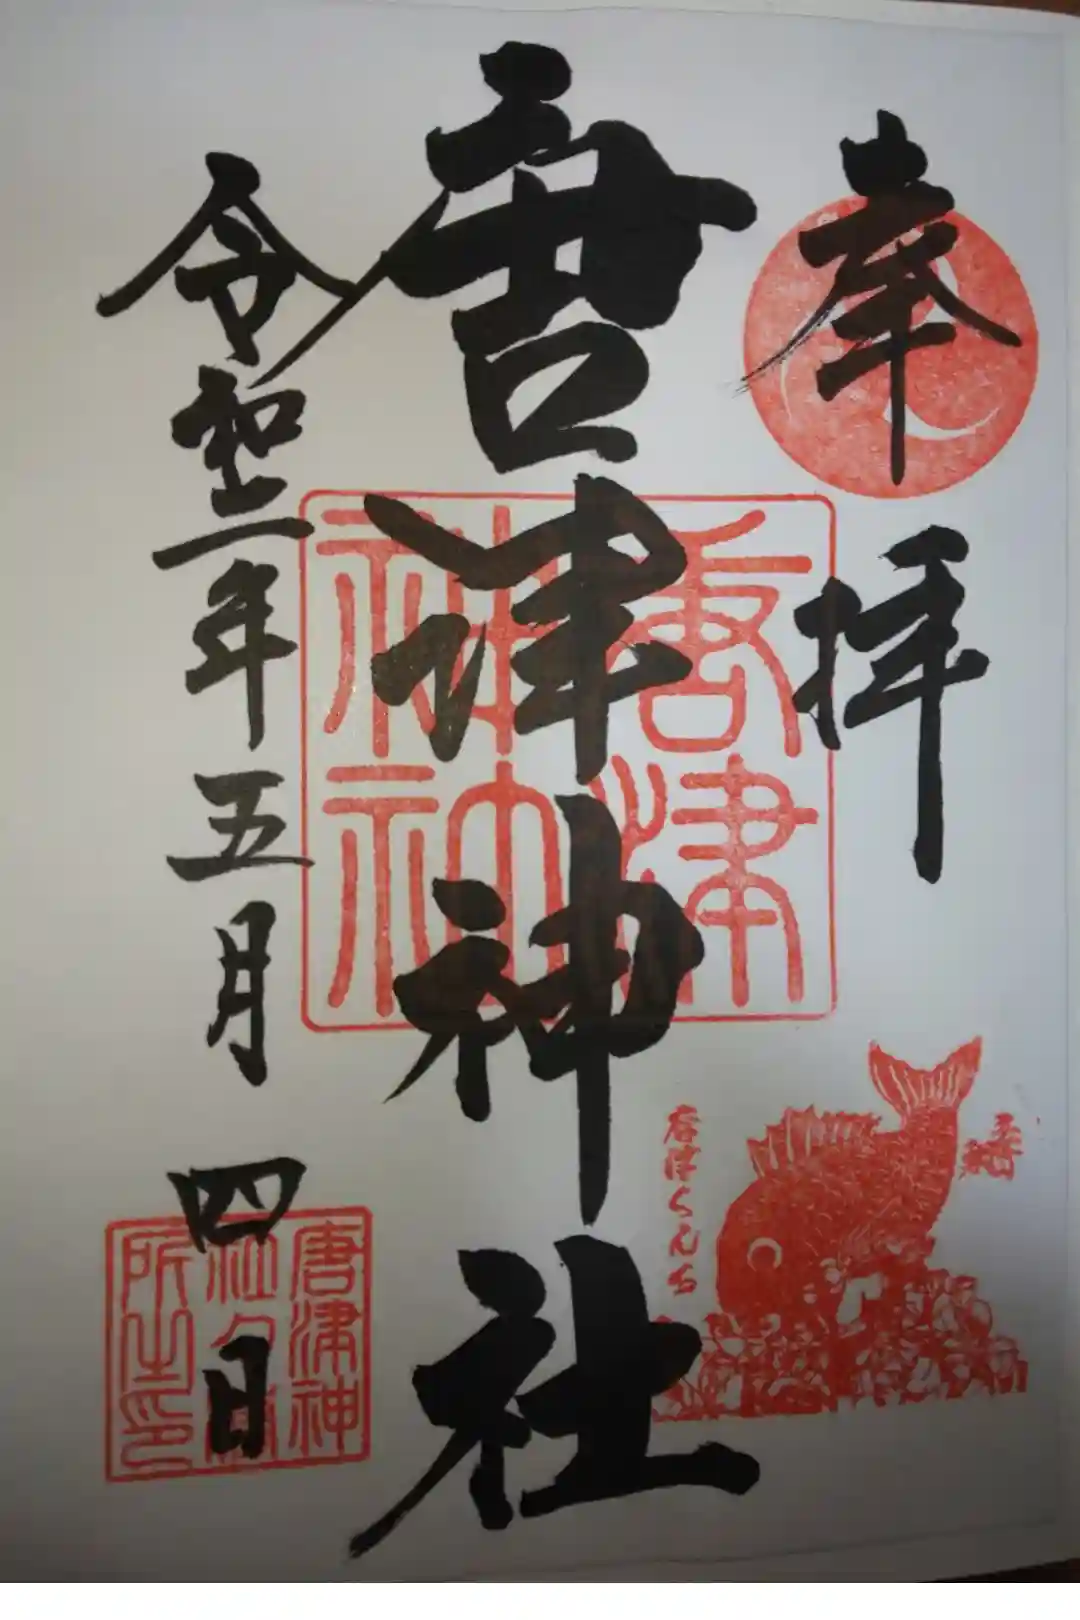 奉拝
唐津神社
令和二年五月四日
唐津
神社
唐津くんち
唐津神
社務
所之印